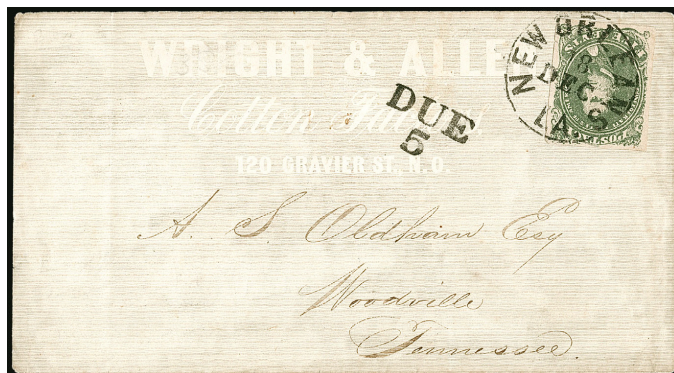 WRIGHT & ALLE
Cotton Factors,
120 GRAVIER ST., N.O.
NEW ORLEANS
8
DEC
LA.
DUE
5
A. S. Oldham Esq
Woodville
Tennessee.